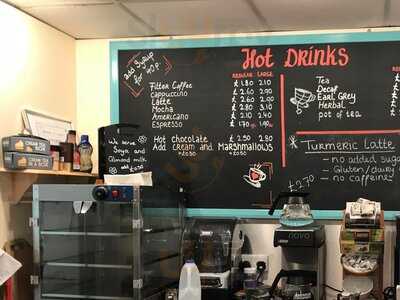 Hot Drinks
add syrup
for 40p
REGULAR LARGE
Filter Coffee £1.80 2.10
Cappuccino £2.60 2.90
Latte £2.60 2.90
Mocha £2.80 3.10
Americano £2.10 2.40
Espresso £1.70 1.90
Hot chocolate £2.50 2.80
Add cream and Marshmallows
+£0.50 +£0.50
Tea
Decaf
Earl Grey
Herbal
pot of tea
We serve
Soya and
Almond milk
add +£0.50
Turmeric Latte
- no added sugar
- Gluten/dairy
- no caffeine
£2.70
nova